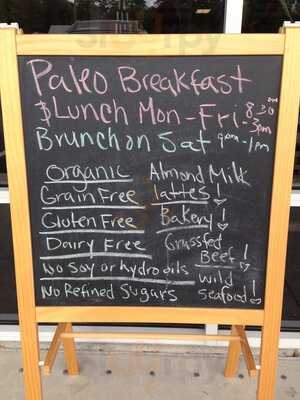 Paleo Breakfast
$Lunch Mon-Fri 8:30am -3pm
Brunch on Sat 9am-1pm
Organic
Grain Free
Gluten Free
Dairy Free
No Soy or hydro oils
No Refined Sugars
Almond Milk
lattes!
Bakery!
Grassfed
Beef!
Wild
Seafood!